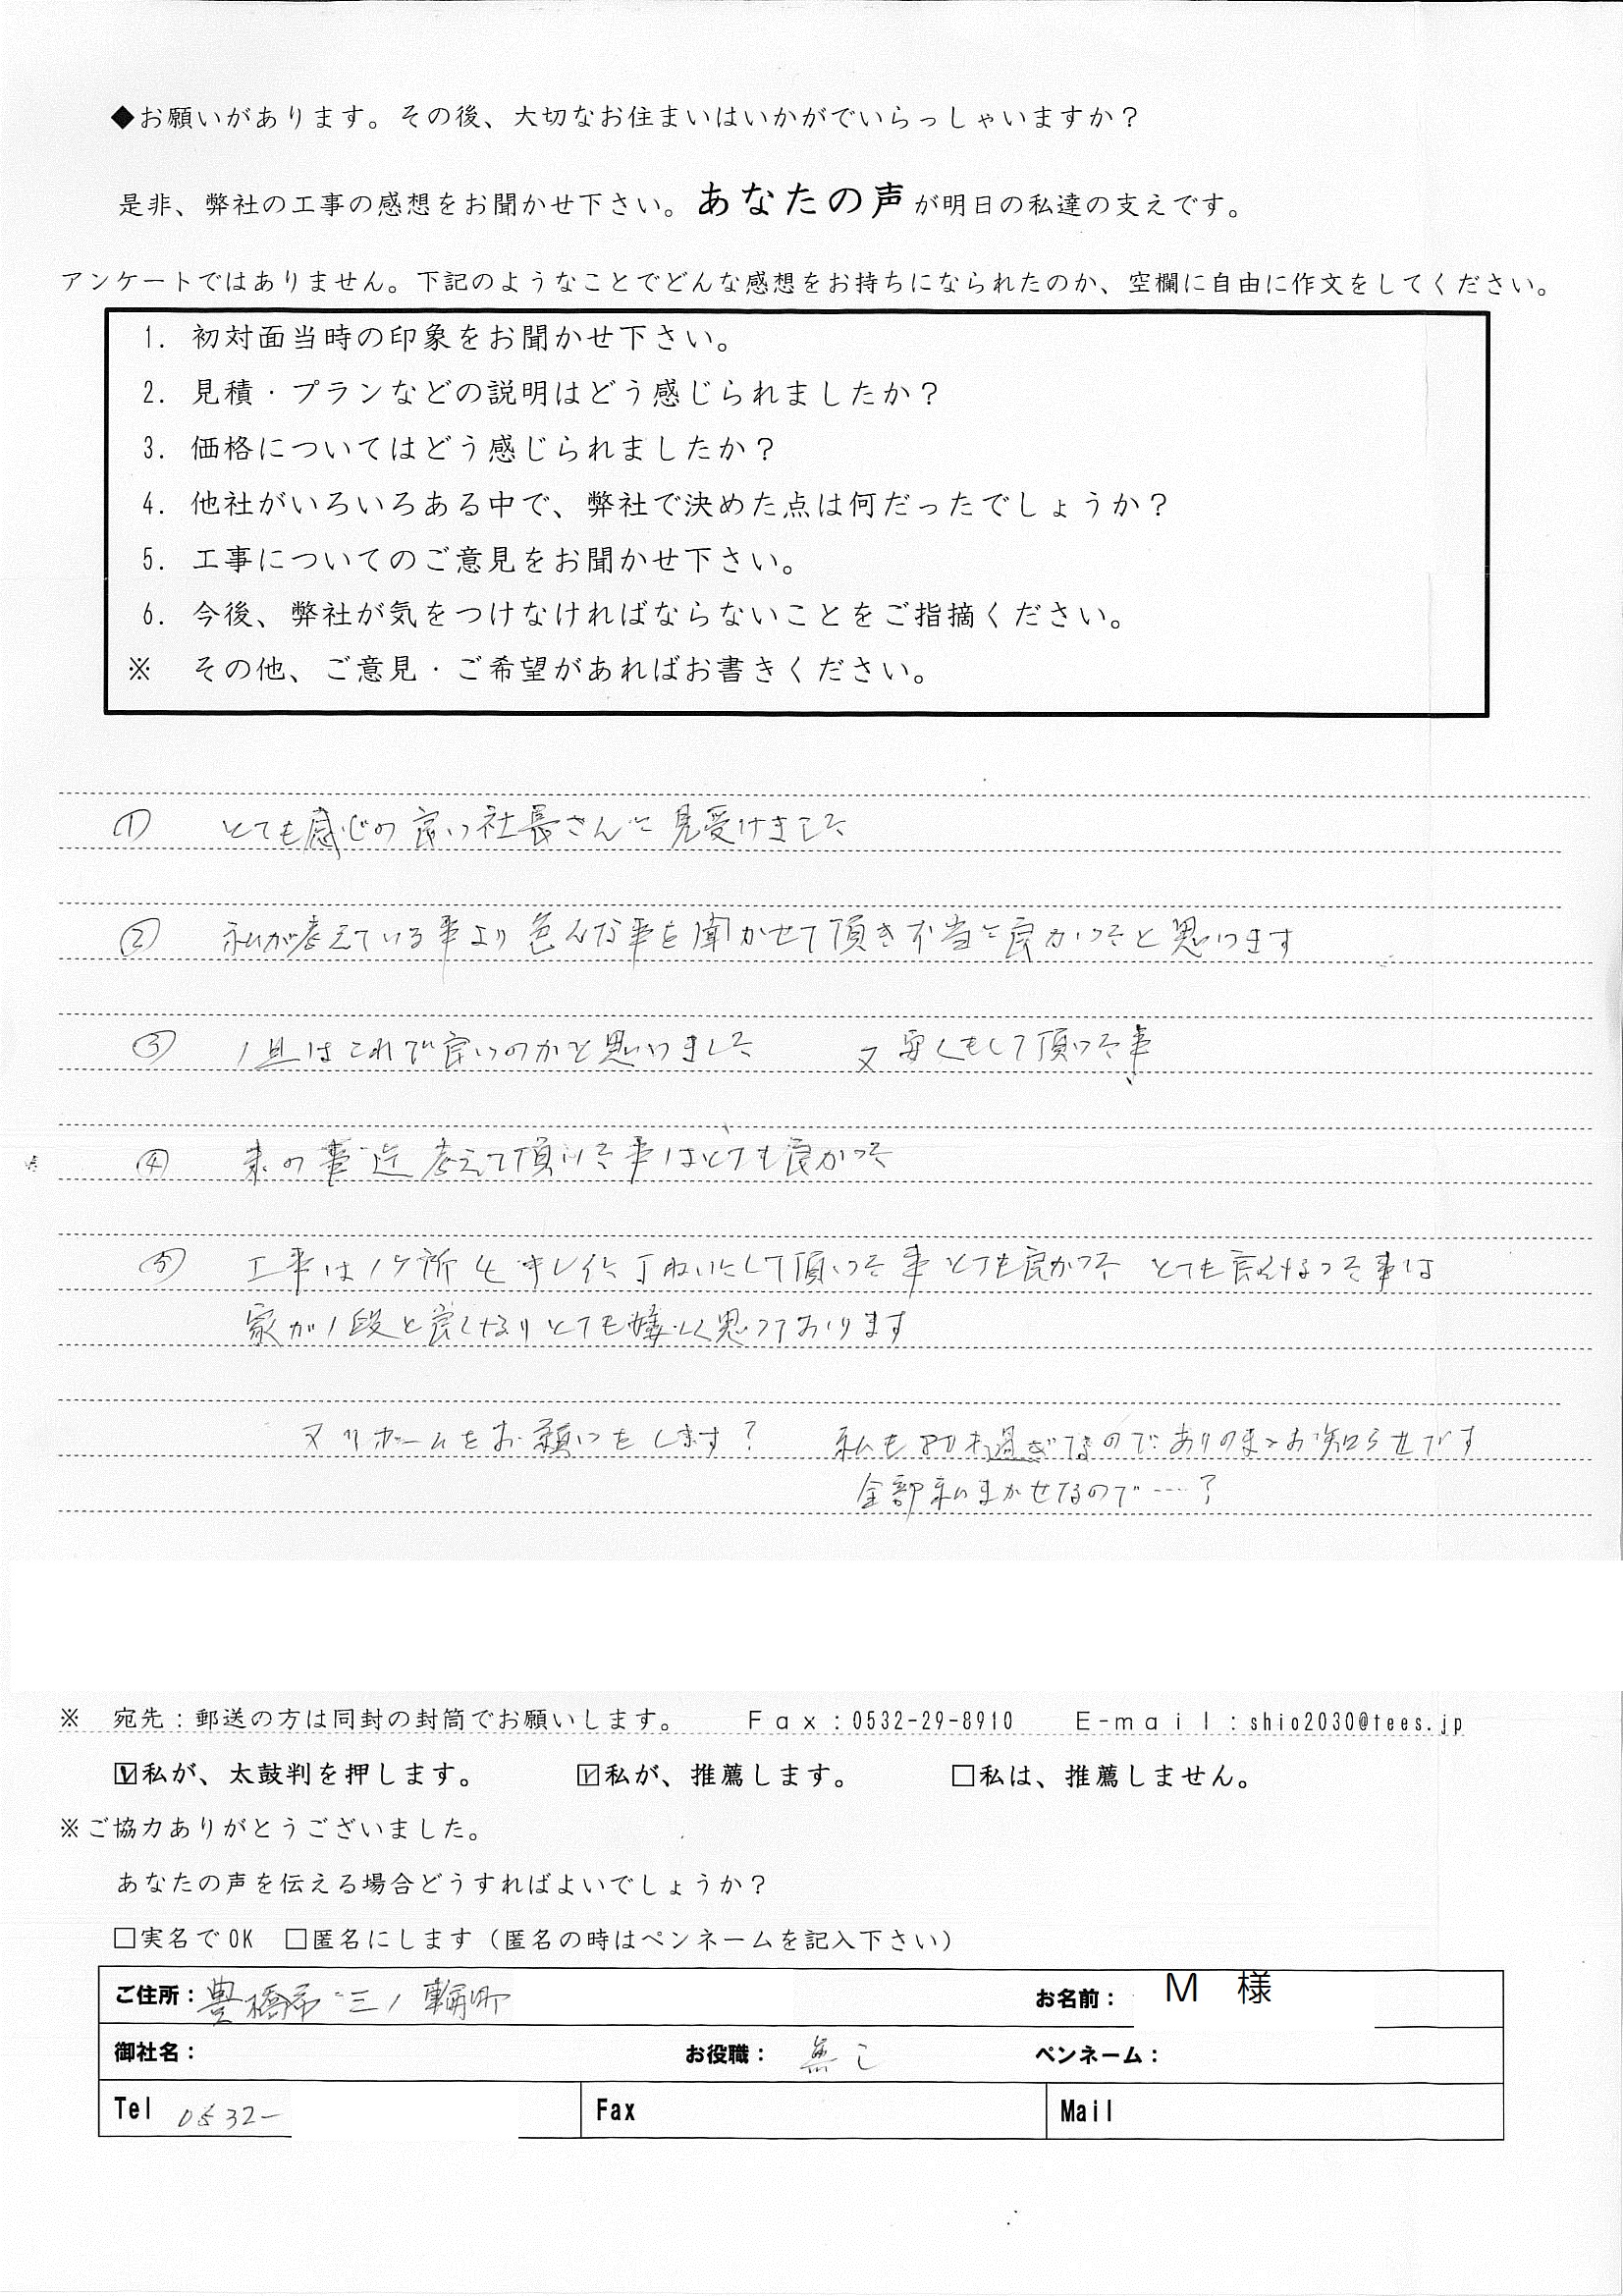 ◆お願いがあります。その後、大切なお住まいはいかがでいらっしゃいますか？
是非、弊社の工事の感想をお聞かせ下さい。あなたの声が明日の私達の支えです。
アンケートではありません。下記のようなことでどんな感想をお持ちになられたのか、空欄に自由に作文をしてください。
1. 初対面当時の印象をお聞かせ下さい。
2. 見積・プランなどの説明はどう感じられましたか？
3. 価格についてはどう感じられましたか？
4. 他社がいろいろある中で、弊社で決めた点は何だったでしょうか？
5. 工事についてのご意見をお聞かせ下さい。
6. 今後、弊社が気をつけなければならないことをご指摘ください。
※ その他、ご意見・ご希望があればお書きください。
① とても感じの良い社長さんに見受けました
② 私が考えている事より色んな事を聞かせて頂き本当に良かったと思います
③ 1且はこれで良いのかと思いました 又安くもして頂いた事
④ 来の事迄考えて頂いた事はとても良かった
⑤ 工事は1ケ所も手レイに丁ねいにして頂いた事とても良かった とても言んなった事は
家が1段と良くなりとても嬉しく思っております
又リホームをお願いをします？ 私も過ぎてなのでありのままお知らせです
全部私まかせなので……？
※ 宛先：郵送の方は同封の封筒でお願いします。 Fax：0532-29-8910 E-mail：shio2030@tees.jp
☑私が、太鼓判を押します。 ☑私が、推薦します。 □私は、推薦しません。
※ご協力ありがとうございました。
あなたの声を伝える場合どうすればよいでしょうか？
□実名でOK □匿名にします（匿名の時はペンネームを記入下さい）
ご住所：豊橋市三ノ輪町 お名前： M 様
御社名： お役職： 無し ペンネーム：
Tel 0532- Fax Mail